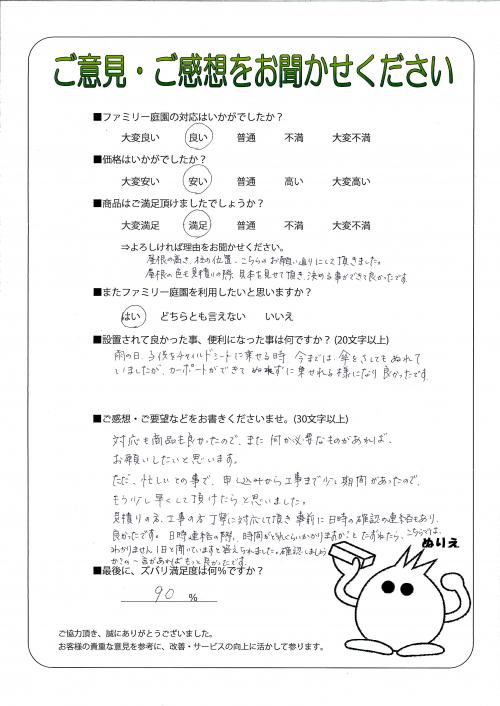 ご意見・ご感想をお聞かせください
■ファミリー庭園の対応はいかがでしたか？
大変良い 良い 普通 不満 大変不満
■価格はいかがでしたか？
大変安い 安い 普通 高い 大変高い
■商品はご満足頂けましたでしょうか？
大変満足 満足 普通 不満 大変不満
⇒よろしければ理由をお聞かせください。
屋根の高さ、柱の位置、こちらのお願い通りにして頂きました。
屋根の色も見積りの際、見本を見せて頂き、決める事ができて良かったです。
■またファミリー庭園を利用したいと思いますか？
はい どちらとも言えない いいえ
■設置されて良かった事、便利になった事は何ですか？(20文字以上)
雨の日、子供をチャイルドシートに乗せる時、今までは、傘をさしてもぬれて
いましたが、カーポートができて ぬれずに乗せれる様になり良かったです。
■ご感想・ご要望などをお書きくださいませ。(30文字以上)
対応も商品も良かったので、また何か必要なものがあれば、
お願いしたいと思います。
ただ、忙しいとの事で、申し込みから工事まで少し期間があったので、
もう少し早くして頂けたらと思いました。
見積りの方、工事の方丁寧に対応して頂き 事前に日時の確認の連絡もあり、
良かったです。日時連絡の際、時間がどれぐらいかかりますか？とたずねたら、こちらでは、
わかりません1日と聞いていますと答えられました。確認しましょう
か？の一言があればもっと良かったです。
ぬりえ
■最後に、ズバリ満足度は何％ですか？
90 ％
ご協力頂き、誠にありがとうございました。
お客様の貴重な意見を参考に、改善・サービスの向上に活かして参ります。